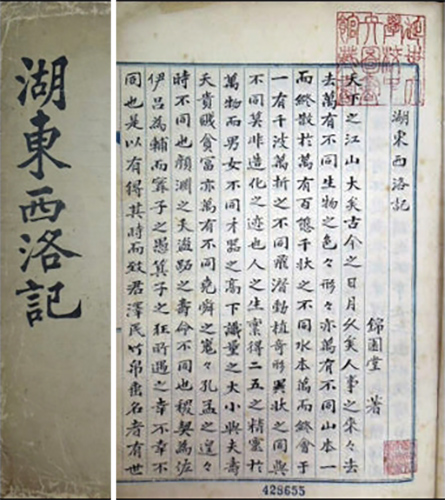 湖東西洛記
延世大
學校中
央圖書
湖東西洛記
錦園堂 著
天下之江山大矣古今之日月久矣人事之來々去
去萬有不同生物之色々形々亦萬有不同山本一
而終散於萬有百態千狀之不同水本萬而終會于
一有千波萬折之不同飛潛動植奇形異狀之同與
不同莫非造化之迹也人之生稟得二五之精靈於
萬物而男女不同才器之高下識量之大小與夫壽
夭貴賤貧富亦萬有不同堯舜之嵬々孔孟之遑々
時不同也顏淵之夭盜跖之壽命不同也稷契為佐
伊呂為輔而甯子之愚箕子之狂所遇之幸不幸不
同也是以有得其時而致君澤民竹帛垂名者有世
428655